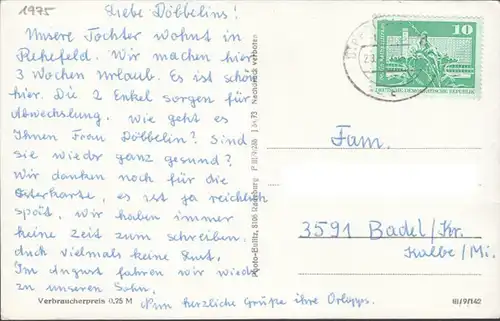 1975
Liebe Döbbelins!
Unsere Tochter wohnt in
Rehefeld. Wir machen hier
3 Wochen Urlaub. Es ist schön
hier. Die 2 Enkel sorgen für
Abwechslung. Wie geht es
Ihnen Frau Döbbelin? Sind
sie wieder ganz gesund?
Wir danken noch für die
Osterkarte, es ist ja reichlich
spät. Wir haben immer
keine Zeit zum schreiben.
auch vielmals keine Lust.
Im August fahren wir wieder
zu unseren Sohn.
Nun herzliche Grüße ihre
Verbraucherpreis 0,25 M
Photo-Bollitz, 8105 Radeburg J 31/73 Nachdruck verboten
10
DEUTSCHE DEMOKRATISCHE REPUBLIK
Fam.
3591 Badel/Kr.
Kalbe/Mi.
III/9/142